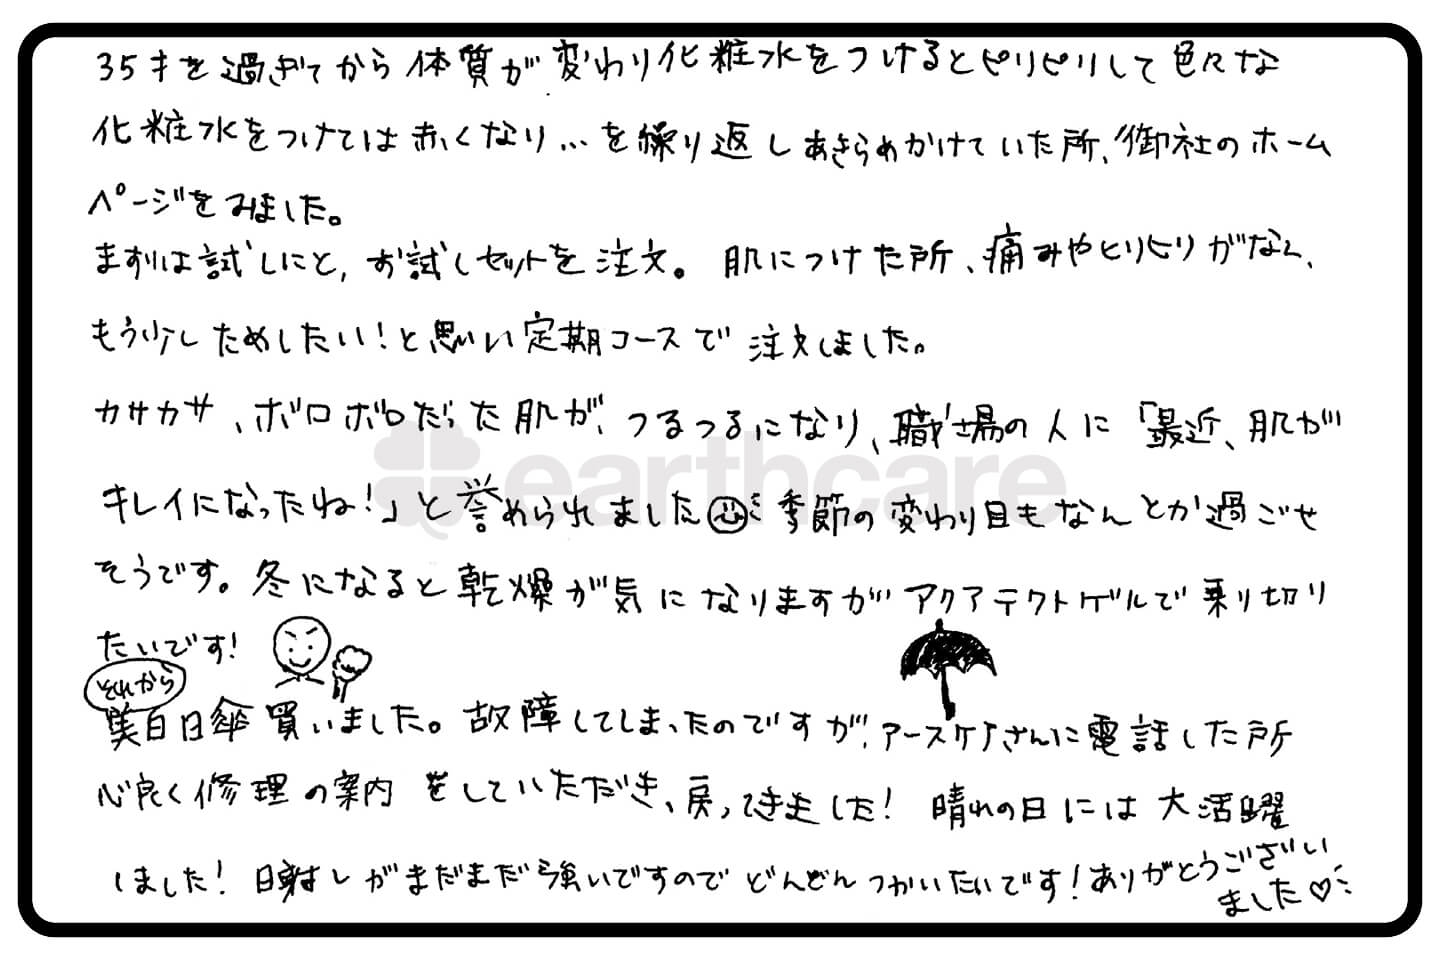 35才を過ぎてから体質が変わり化粧水をつけるとピリピリして色々な
化粧水をつけては赤くなり…を繰り返しあきらめかけていた所、御社のホーム
ページをみました。
まずは試しにと、お試しセットを注文。肌につけた所、痛みやヒリヒリがなく、
もう少しためしたい！と思い定期コースで注文しました。
カサカサ、ボロボロだった肌が、つるつるになり、職場の人に「最近、肌が
キレイになったね！」と誉められました 季節の変わり目もなんとか過ごせ
そうです。冬になると乾燥が気になりますがアクアテクトゲルで乗り切り
たいです！
それから
美白日傘買いました。故障してしまったのですが、アースケアさんに電話した所
心良く修理の案内をしていただき、戻ってきました！晴れの日には大活躍
しました！日射しがまだまだ強いですのでどんどんつかいたいです！ありがとうござい
ました♡
earthcare